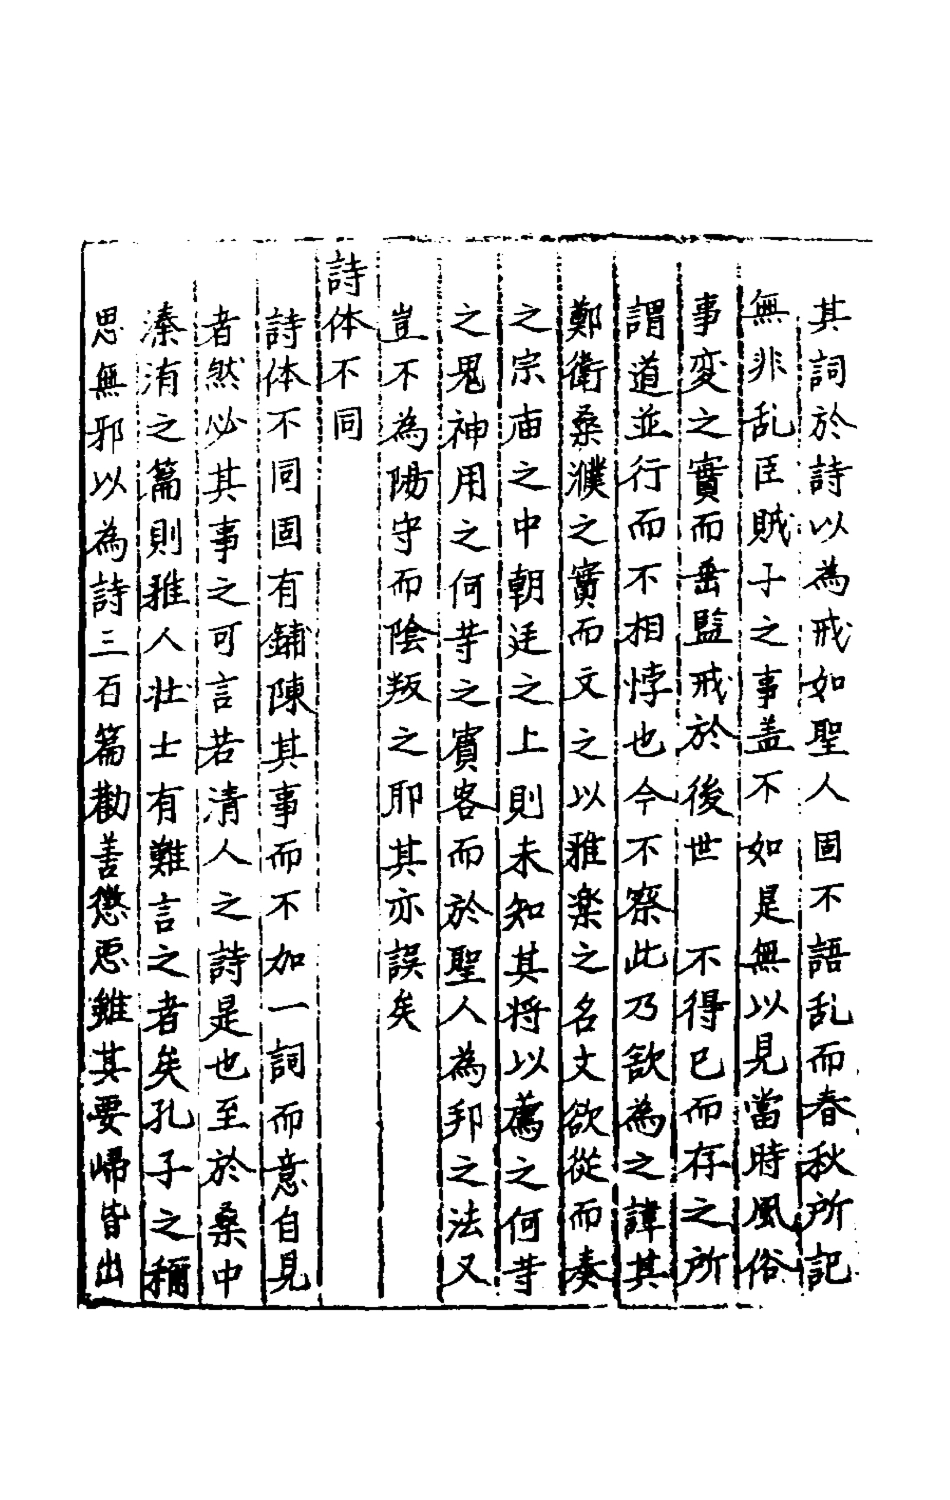 其詞於詩以為戒如聖人固不語乱而春秋所記
無非乱臣賊子之事盖不如是無以見當時風俗
事変之實而垂監戒於後世 不得已而存之所
謂道並行而不相悖也今不察此乃欲為之諱其
鄭衛桑濮之實而文之以雅楽之名文欲從而奏
之宗庙之中朝廷之上則未知其将以薦之何等
之鬼神用之何等之賓客而於聖人為邦之法又
豈不為陽守而陰叛之耶其亦誤矣
詩体不同
詩体不同固有鋪陳其事而不加一詞而意自見
者然必其事之可言若清人之詩是也至於桑中
溱洧之篇則雅人壮士有難言之者矣孔子之稱
思無邪以為詩三百篇勸善懲惡雖其要帰皆出